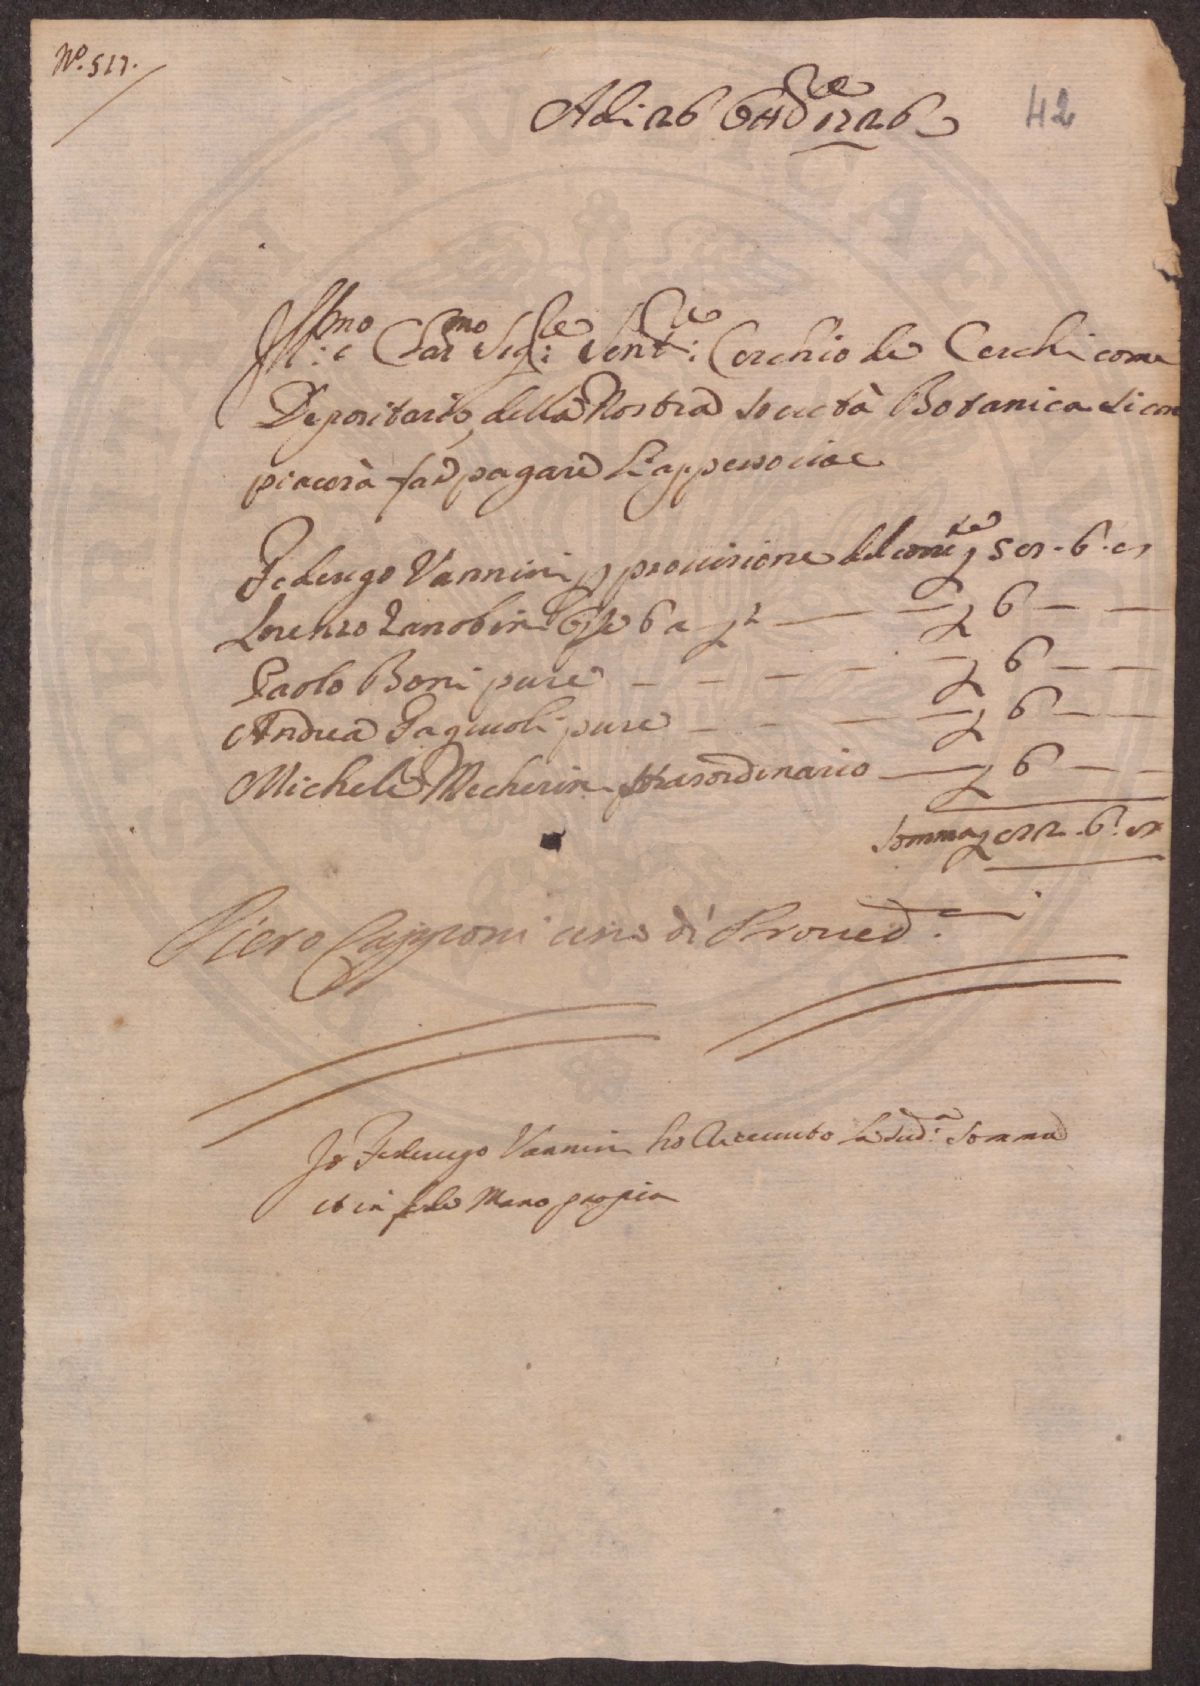 N.º 517.
42
Adi 26 Ott.re 1726
Ill.mo e Clar.mo Sig.re Sen.re Cerchio de Cerchi come
Depositario della Nostra Società Botanica si com
piacerà far pagare L'appersocrae
Federigo Vannini p provisione del corr.te 5 . 6 .
Lorenzo Zanobini 6 a 6
Paolo Boni pure 6
Andrea Fagiuoli pure 6
Michele Mecherini straordinario 6
Somma . 6 .
Piero Capponi uno di Proved.
Io Federigo Vannini ho ricevuto la sud.a somma
et in fede Mano propia